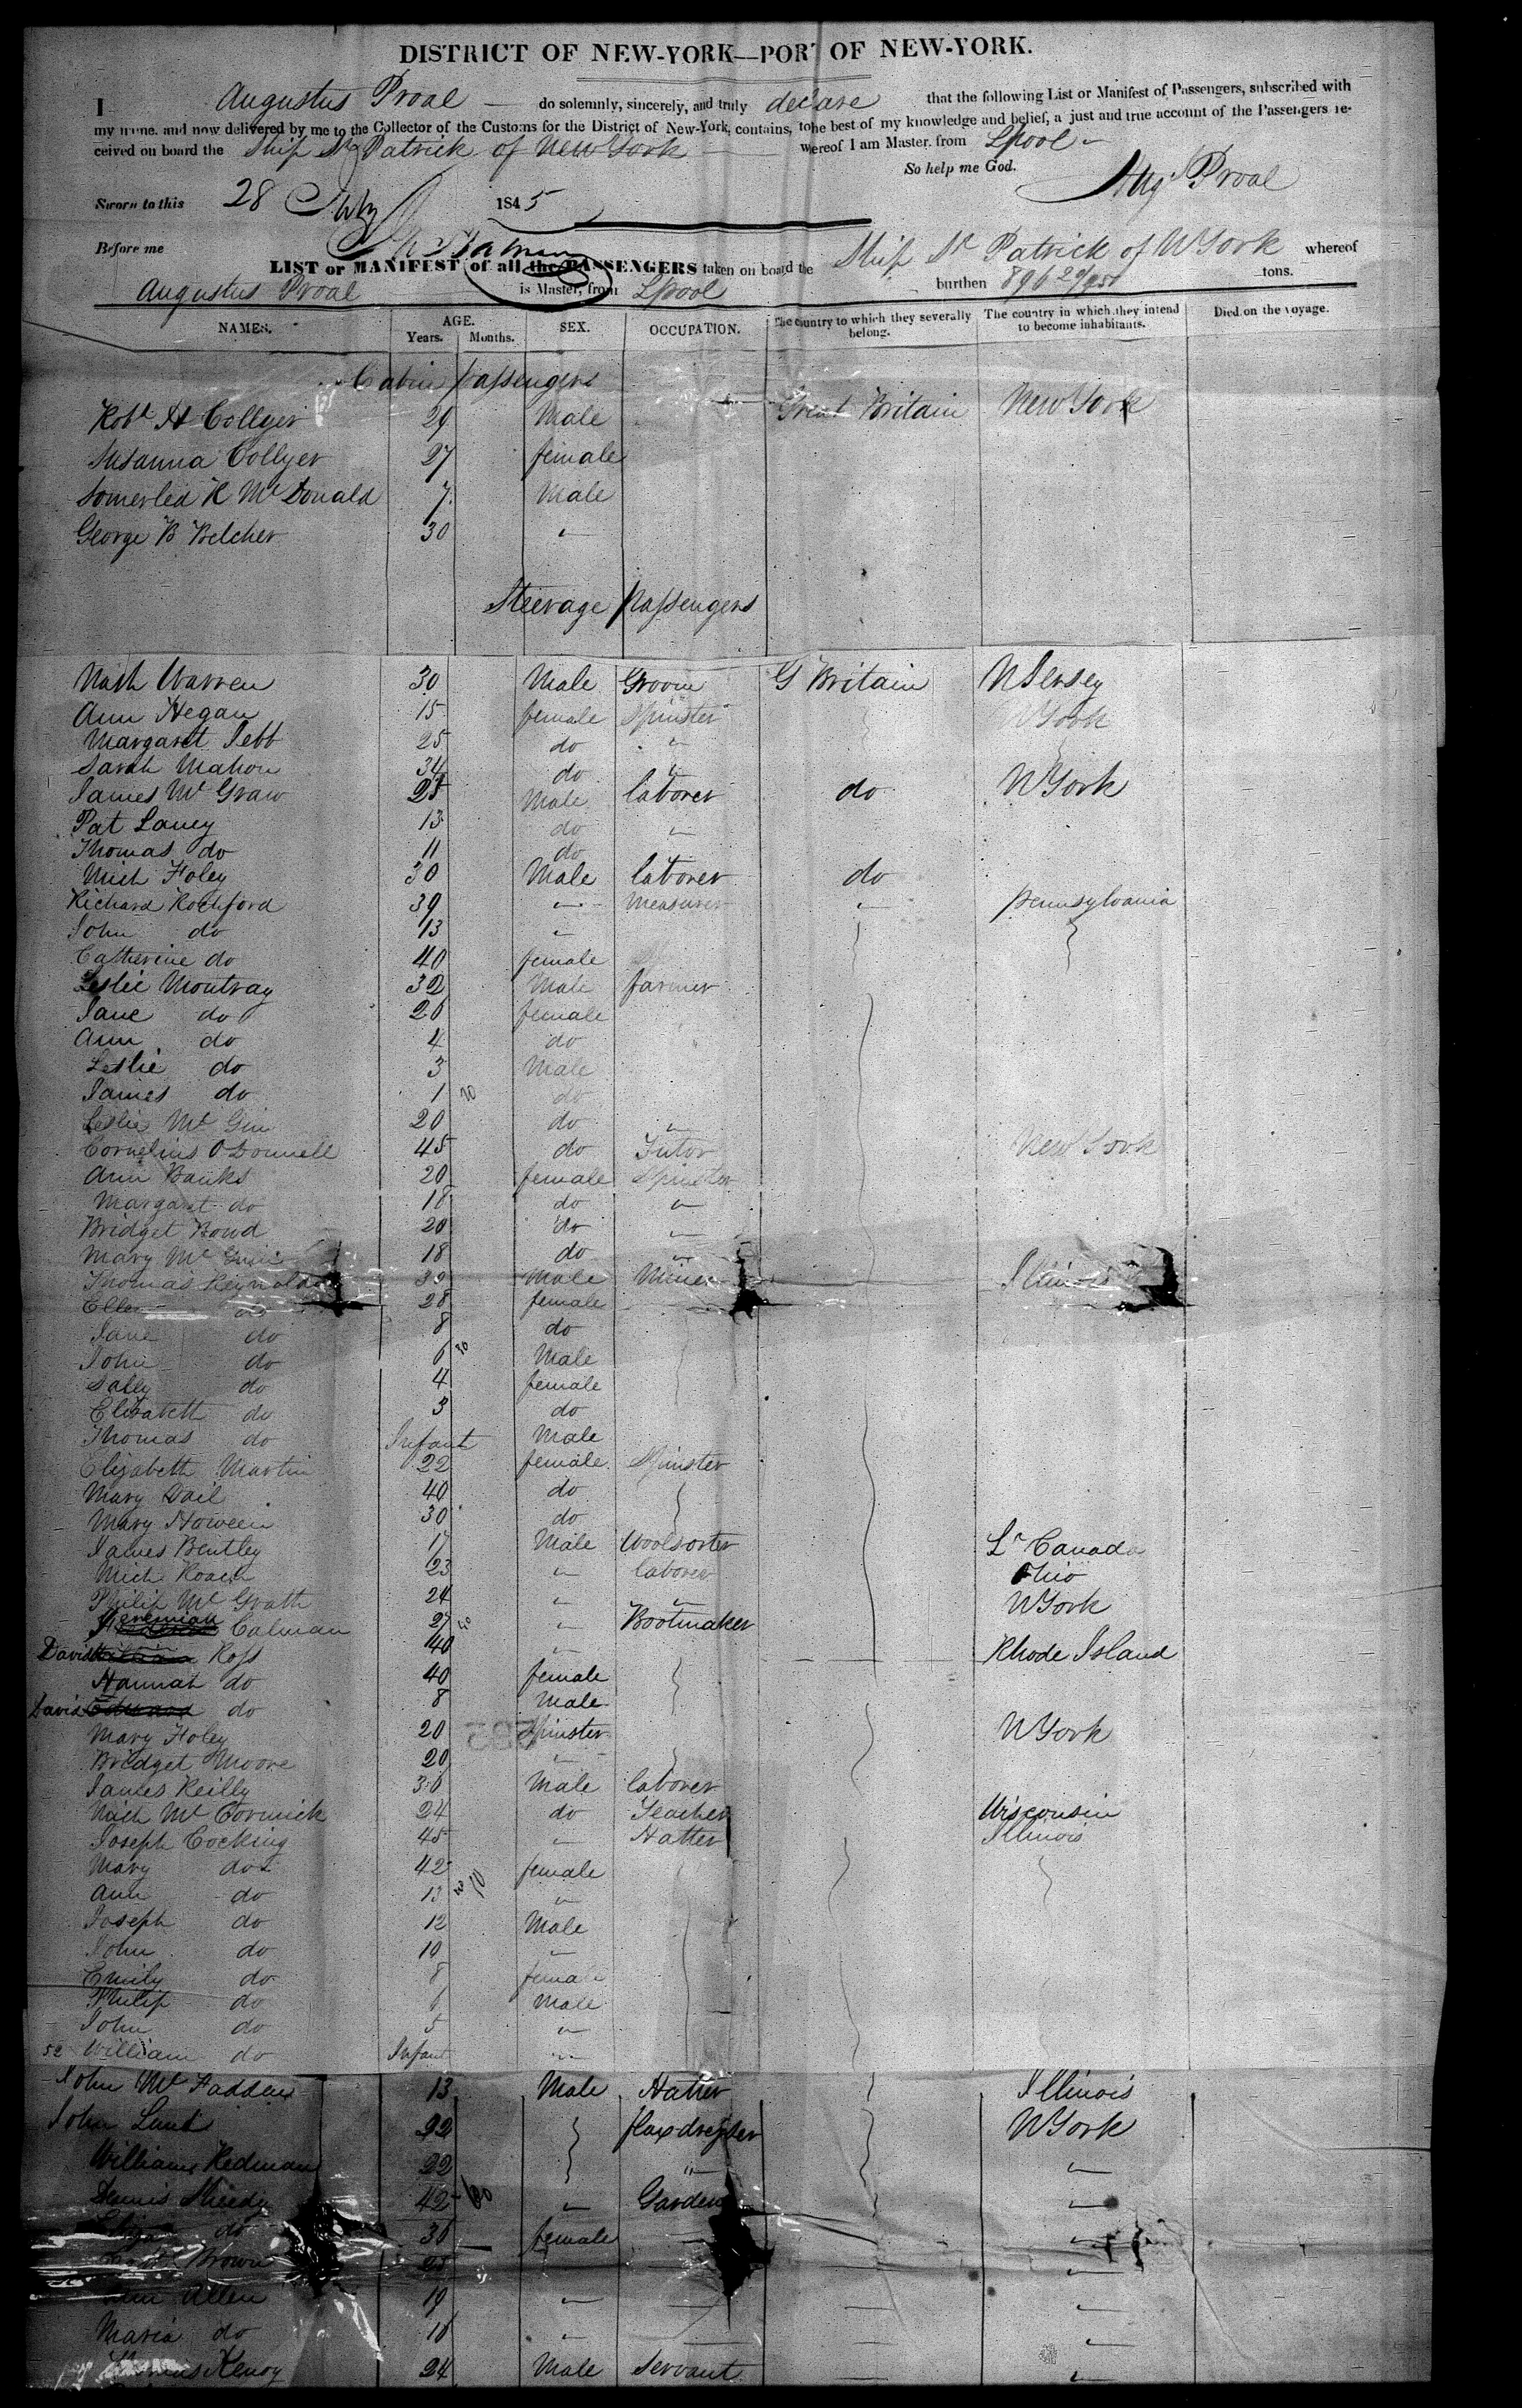 DISTRICT OF NEW-YORK—PORT OF NEW-YORK.
I Augustus Proal do solemnly, sincerely, and truly declare that the following List or Manifest of Passengers, subscribed with
my name. and now delivered by me to the Collector of the Customs for the District of New-York, contains, to the best of my knowledge and belief, a just and true account of the Passengers re-
ceived on board the Ship St Patrick of New York whereof I am Master. from Lpool
So help me God.
Augs Proal
Sworn to this 28 July 1845
Before me
LIST or MANIFEST of all the PASSENGERS taken on board the Ship St Patrick of NYork whereof
Augustus Proal is Master, from Lpool burthen 896 tons.
NAMES. AGE. Years. Months. SEX. OCCUPATION. The country to which they severally belong. The country in which they intend to become inhabitants. Died on the voyage.
Cabin passengers
Robt H Collyer 29 Male Great Britain New York
Susanna Collyer 27 female
Somerled R McDonald 7 Male
George B Belcher 30 "
Steerage passengers
Nash Warren 30 Male Groom G Britain N Jersey
Ann Hegan 15 female Spinster NYork
Margaret Jebb 25 do "
Sarah Mahon 34 do "
James McGraw 25 Male laborer do NYork
Pat Laney 13 do "
Thomas do 11 do
Mich Foley 30 Male laborer do
Richard Rochford 39 " Measurer " pennsylvania
John do 13 "
Catherine do 40 female
Leslie Montray 32 Male farmer
Jane do 26 female
Ann do 4 do
Leslie do 3 Male
James do 1 do
Leslie Mc 20 do "
Cornelius ODonnell 45 do Tutor New York
Ann Banks 20 female Spinster
Margaret do 18 do "
Bridget Bowd 20 do "
Mary Mc 18 do "
Thomas Reynolds Male Miner Illinois
Ellen do 28 female
Jane do 8 do
John do 6 Male
Sally do 4 female
Elizabeth do 3 do
Thomas do Infant Male
Elizabeth Martin 22 female Spinster
Mary Dail 40 do
Mary Hoween 30 do
James Bentley 17 Male Woolsorter Lr Canada
Mich Roach 23 " laborer Ohio
Philip McGrath 24 " " NYork
Jeremiah Calman 27 " Bootmaker
David Ross 40 " Rhode Island
Hannah do 40 female
David do 8 Male
Mary Foley 20 Spinster NYork
Bridget Moore 20 "
James Reilly 36 Male laborer
Mich McCormick 24 do Teacher Wisconsin
Joseph Cocking 45 " Hatter Illinois
Mary do 42 female
Ann do 13 "
Joseph do 12 Male
John do 10 "
Emily do 8 female
Philip do 6 Male
John do 5 "
52 William do Infant "
John McFadden 13 Male Hatter Illinois
John Lunt 22 flaxdresser NYork
William Redman 22 " "
Dennis Sheedy 42 " Garden "
do 36 female "
Brown 25 "
Ann Allen 19 " "
Maria do 16 " "
Thomas Kenoy 24 Male Servant "